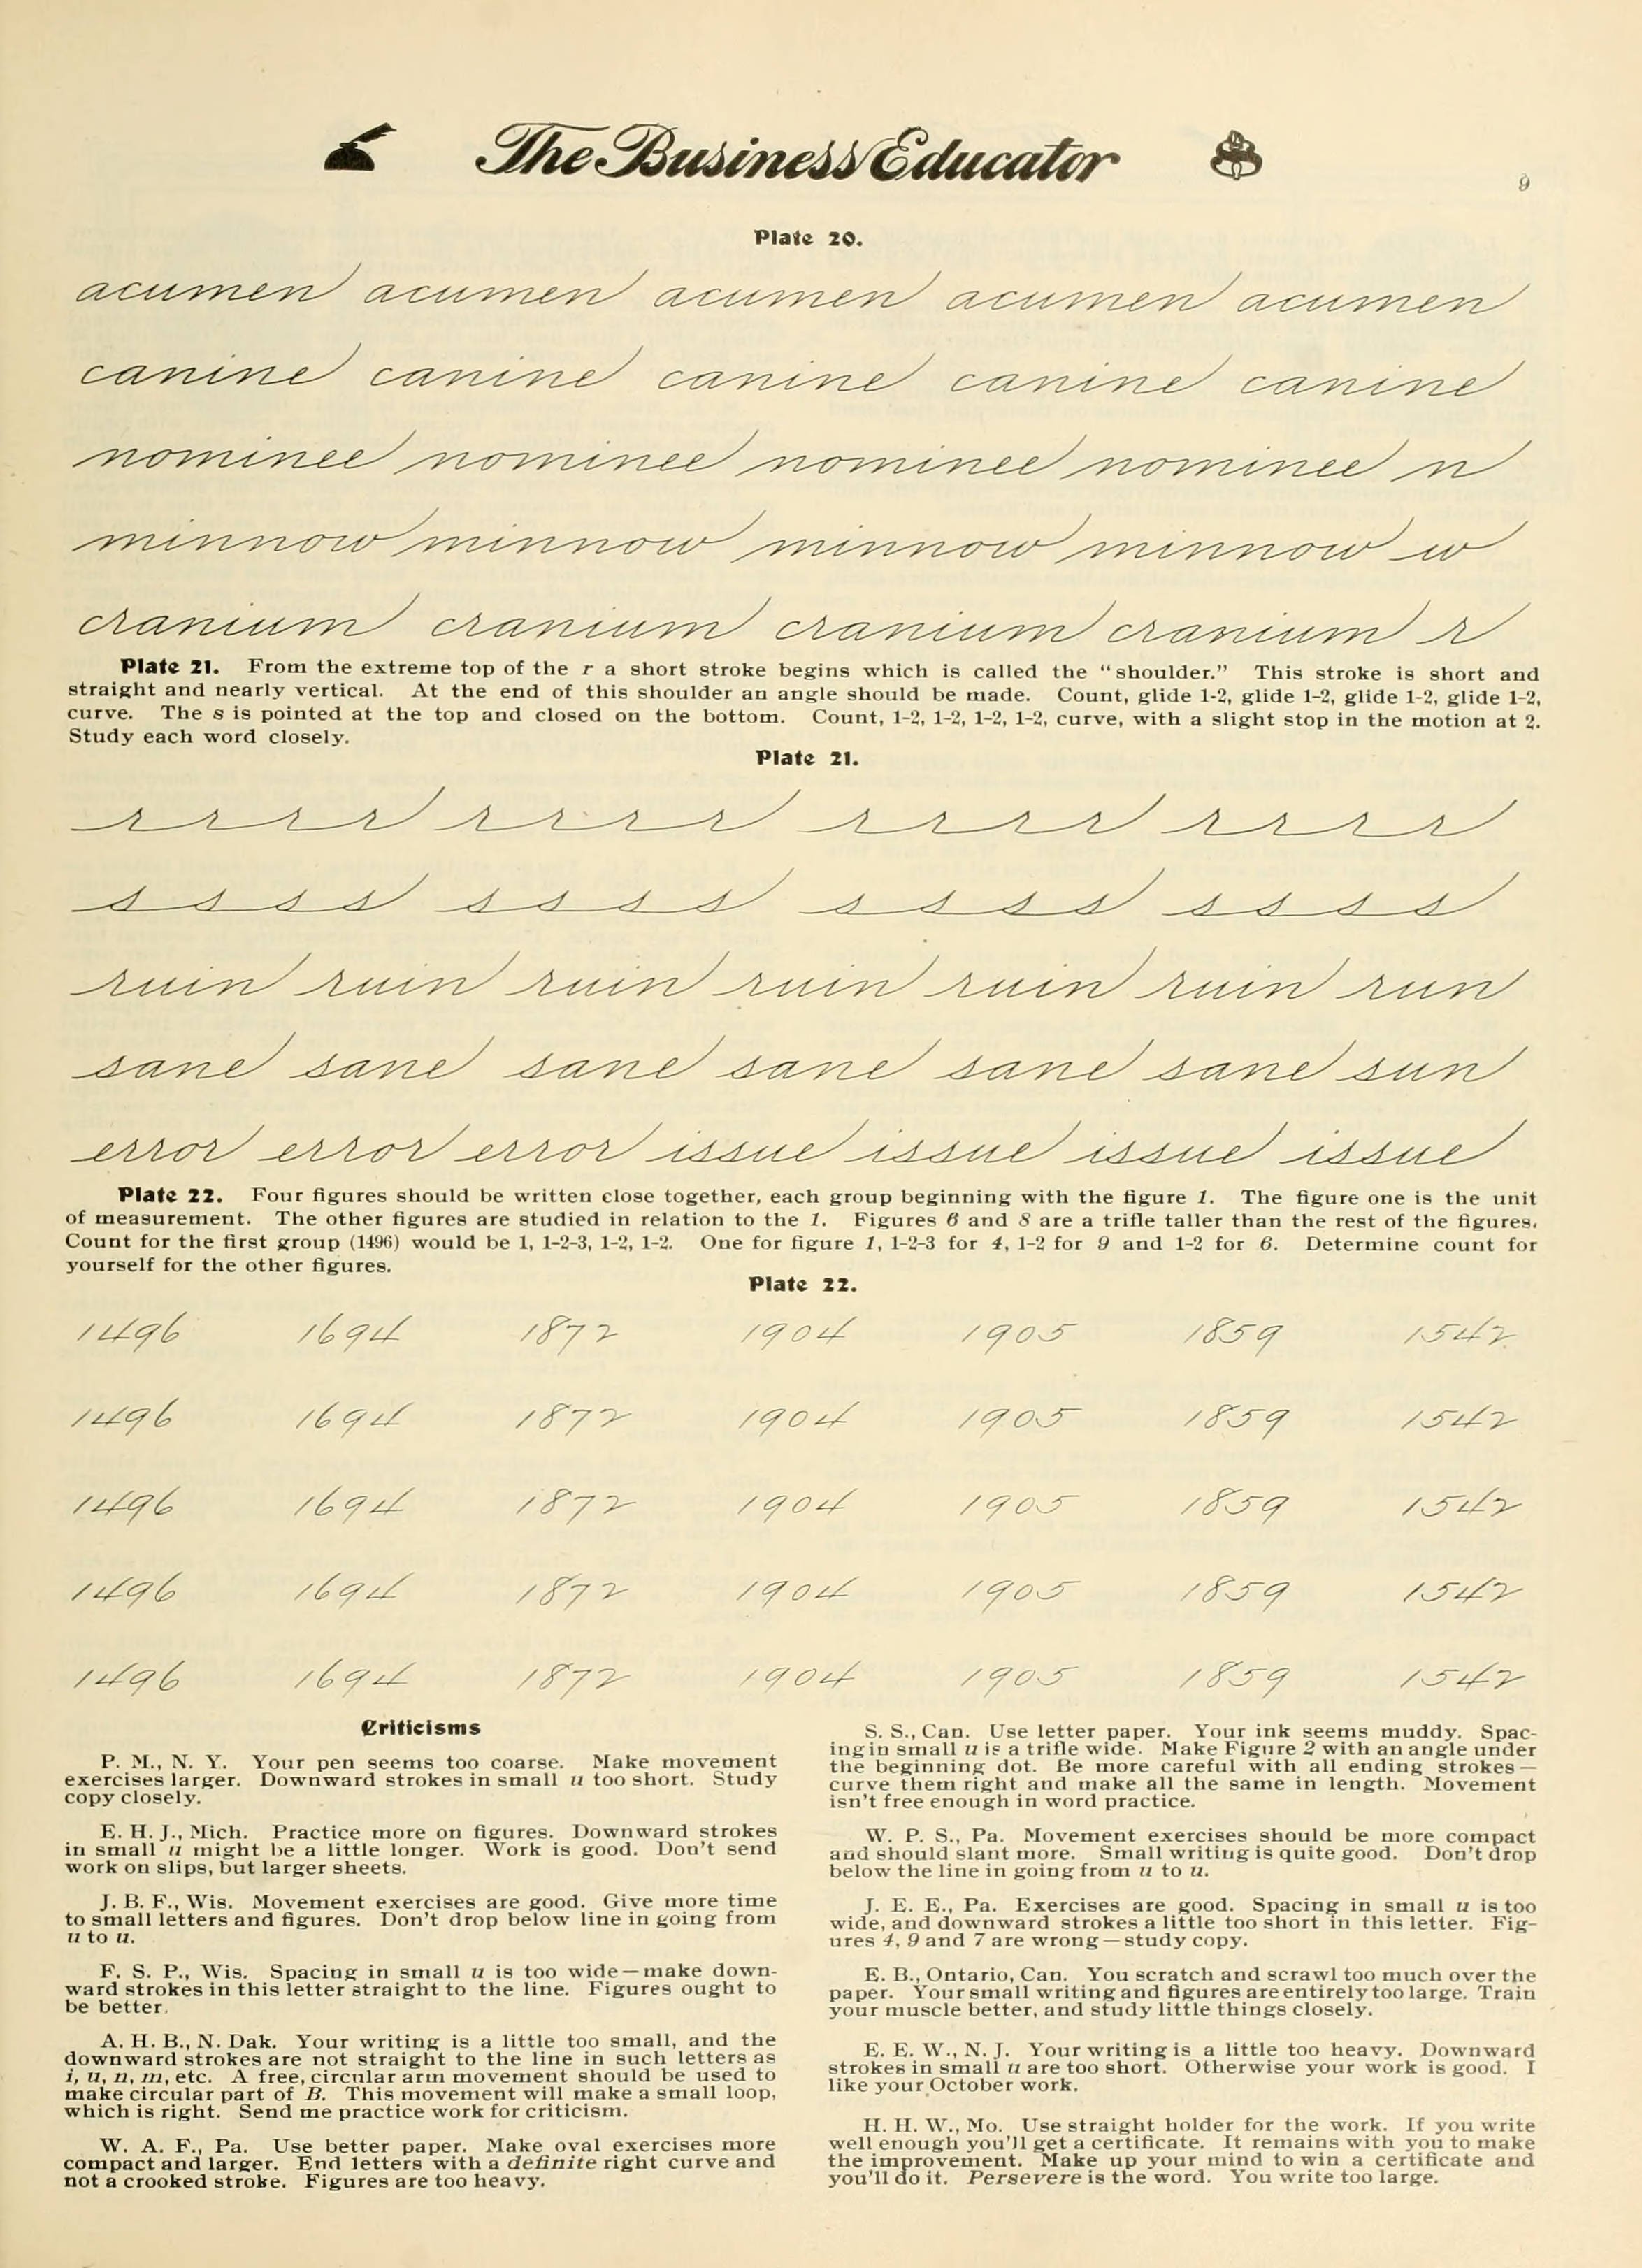 The Business Educator
9
Plate 20.
acumen acumen acumen acumen acumen
canine canine canine canine canine
nominee nominee nominee nominee n
minnow minnow minnow minnow w
cranium cranium cranium cranium r
Plate 21. From the extreme top of the r a short stroke begins which is called the "shoulder." This stroke is short and
straight and nearly vertical. At the end of this shoulder an angle should be made. Count, glide 1-2, glide 1-2, glide 1-2, glide 1-2,
curve. The s is pointed at the top and closed on the bottom. Count, 1-2, 1-2, 1-2, 1-2, curve, with a slight stop in the motion at 2.
Study each word closely.
Plate 21.
r r r r r r r r r r r r r r r r
s s s s s s s s s s s s s s s s
ruin ruin ruin ruin ruin ruin run
sane sane sane sane sane sane sun
error error error issue issue issue issue
Plate 22. Four figures should be written close together, each group beginning with the figure 1. The figure one is the unit
of measurement. The other figures are studied in relation to the 1. Figures 6 and 8 are a trifle taller than the rest of the figures.
Count for the first group (1496) would be 1, 1-2-3, 1-2, 1-2. One for figure 1, 1-2-3 for 4, 1-2 for 9 and 1-2 for 6. Determine count for
yourself for the other figures.
Plate 22.
1496 1694 1872 1904 1905 1859 1542
1496 1694 1872 1904 1905 1859 1542
1496 1694 1872 1904 1905 1859 1542
1496 1694 1872 1904 1905 1859 1542
1496 1694 1872 1904 1905 1859 1542
Criticisms
P. M., N. Y. Your pen seems too coarse. Make movement
exercises larger. Downward strokes in small u too short. Study
copy closely.
E. H. J., Mich. Practice more on figures. Downward strokes
in small u might be a little longer. Work is good. Don't send
work on slips, but larger sheets.
J. B. F., Wis. Movement exercises are good. Give more time
to small letters and figures. Don't drop below line in going from
u to u.
F. S. P., Wis. Spacing in small u is too wide—make down-
ward strokes in this letter straight to the line. Figures ought to
be better.
A. H. B., N. Dak. Your writing is a little too small, and the
downward strokes are not straight to the line in such letters as
i, u, n, m, etc. A free, circular arm movement should be used to
make circular part of B. This movement will make a small loop,
which is right. Send me practice work for criticism.
W. A. F., Pa. Use better paper. Make oval exercises more
compact and larger. End letters with a definite right curve and
not a crooked stroke. Figures are too heavy.
S. S., Can. Use letter paper. Your ink seems muddy. Spac-
ing in small u is a trifle wide. Make Figure 2 with an angle under
the beginning dot. Be more careful with all ending strokes—
curve them right and make all the same in length. Movement
isn't free enough in word practice.
W. P. S., Pa. Movement exercises should be more compact
and should slant more. Small writing is quite good. Don't drop
below the line in going from u to u.
J. E. E., Pa. Exercises are good. Spacing in small u is too
wide, and downward strokes a little too short in this letter. Fig-
ures 4, 9 and 7 are wrong—study copy.
E. B., Ontario, Can. You scratch and scrawl too much over the
paper. Your small writing and figures are entirely too large. Train
your muscle better, and study little things closely.
E. E. W., N. J. Your writing is a little too heavy. Downward
strokes in small u are too short. Otherwise your work is good. I
like your October work.
H. H. W., Mo. Use straight holder for the work. If you write
well enough you'll get a certificate. It remains with you to make
the improvement. Make up your mind to win a certificate and
you'll do it. Persevere is the word. You write too large.